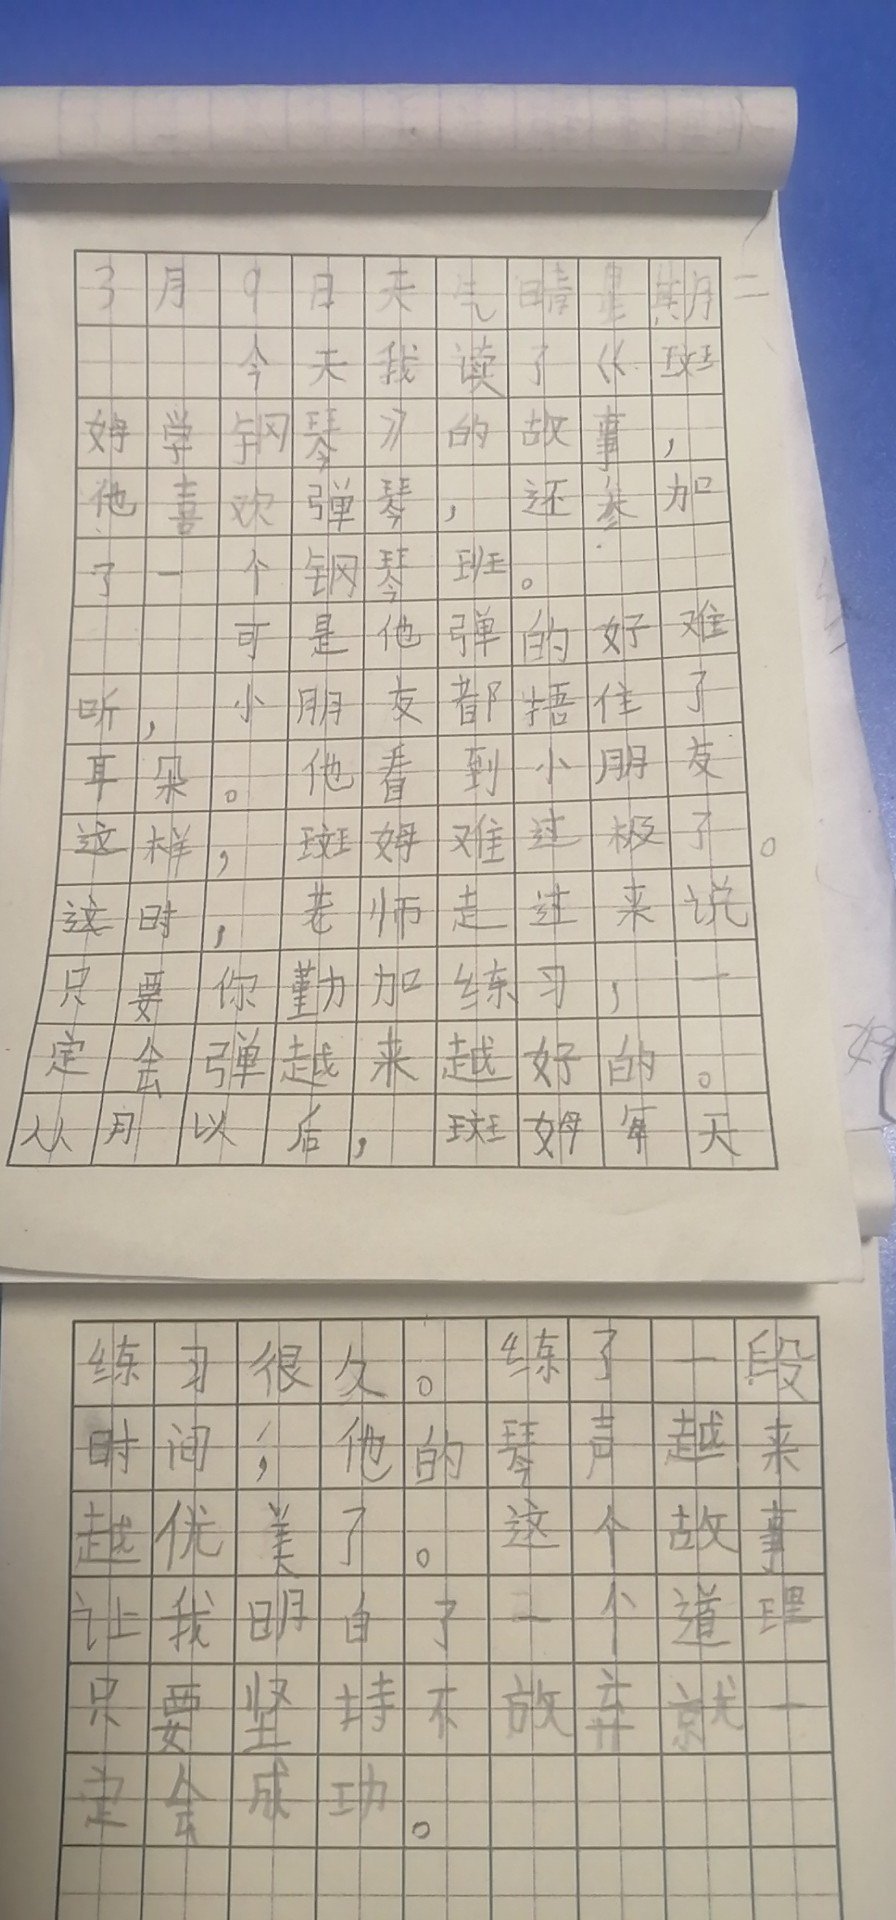 3月9日天气晴星期二
今天我读了《斑
姆学钢琴》的故事,
他喜欢弹琴,还参加
了一个钢琴班。
可是他弹的好难
听,小朋友都捂住了
耳朵。他看到小朋友
这样,斑姆难过极了。
这时,老师走过来说
只要你勤加练习,一
定会弹越来越好的。
从月以后,斑姆每天
练习很久。练了一段
时间,他的琴声越来
越优美了。这个故事
让我明白了一个道理
只要坚持不放弃就一
定会成功。